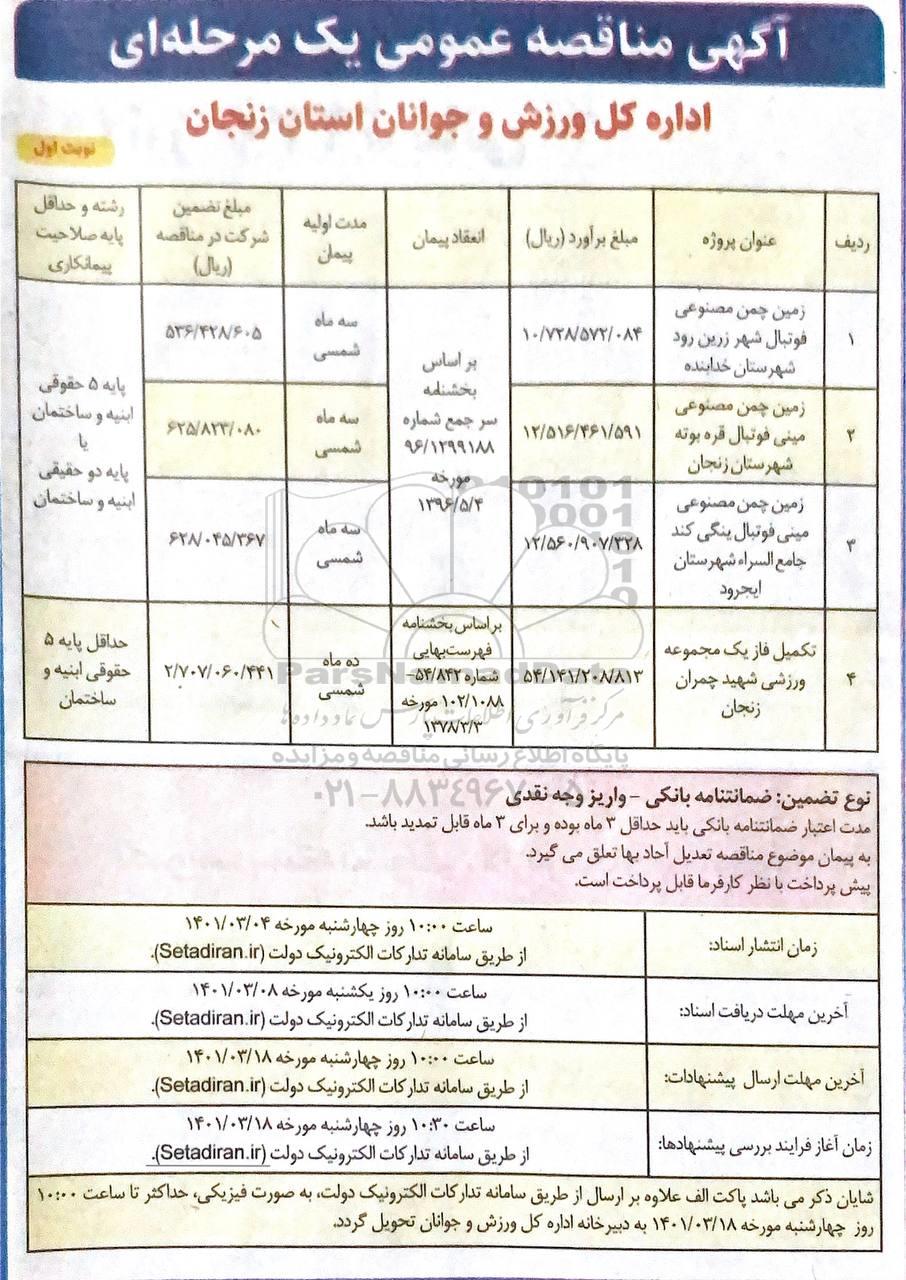 آگهی مناقصه عمومی یک مرحله‌ای
اداره کل ورزش و جوانان استان زنجان
نوبت اول
ردیف
عنوان پروژه
مبلغ برآورد (ریال)
انعقاد پیمان
مدت اولیه
پیمان
مبلغ تضمین
شرکت در مناقصه
(ریال)
رشته و حداقل
پایه صلاحیت
پیمانکاری
۱
زمین چمن مصنوعی
فوتبال شهر زرین رود
شهرستان خدابنده
۱۰/۷۲۸/۵۷۲/۰۸۴
بر اساس
بخشنامه
سر جمع شماره
۹۶/۱۲۹۹۱۸۸
مورخه
۱۳۹۶/۵/۴
سه ماه
شمسی
۵۳۶/۴۲۸/۶۰۵
پایه ۵ حقوقی
ابنیه و ساختمان
یا
پایه دو حقیقی
ابنیه و ساختمان
۲
زمین چمن مصنوعی
مینی فوتبال قره بوته
شهرستان زنجان
۱۲/۵۱۶/۴۶۱/۵۹۱
سه ماه
شمسی
۶۲۵/۸۲۳/۰۸۰
۳
زمین چمن مصنوعی
مینی فوتبال ینگی کند
جامع السراء شهرستان
ایجرود
۱۲/۵۶۰/۹۰۷/۳۲۸
سه ماه
شمسی
۶۲۸/۰۴۵/۳۶۷
۴
تکمیل فاز یک مجموعه
ورزشی شهید چمران
زنجان
۵۴/۱۴۱/۲۰۸/۸۱۳
بر اساس بخشنامه
فهرست‌بهایی
شماره ۵۴/۸۴۲-
۱۰۲/۱۰۸۸ مورخه
۱۳۷۸/۳/۳
ده ماه
شمسی
۲/۷۰۷/۰۶۰/۴۴۱
حداقل پایه ۵
حقوقی ابنیه و
ساختمان
ParsNamadData
مرکز فرآوری اطلاعات پارس نماد داده‌ها
پایگاه اطلاع رسانی مناقصه و مزایده
نوع تضمین: ضمانتنامه بانکی - واریز وجه نقدی
مدت اعتبار ضمانتنامه بانکی باید حداقل ۳ ماه بوده و برای ۳ ماه قابل تمدید باشد.
به پیمان موضوع مناقصه تعدیل آحاد بها تعلق می گیرد.
پیش پرداخت با نظر کارفرما قابل پرداخت است.
زمان انتشار اسناد:
ساعت ۱۰:۰۰ روز چهارشنبه مورخه ۱۴۰۱/۰۳/۰۴
از طریق سامانه تدارکات الکترونیک دولت (Setadiran.ir).
آخرین مهلت دریافت اسناد:
ساعت ۱۰:۰۰ روز یکشنبه مورخه ۱۴۰۱/۰۳/۰۸
از طریق سامانه تدارکات الکترونیک دولت (Setadiran.ir).
آخرین مهلت ارسال پیشنهادات:
ساعت ۱۰:۰۰ روز چهارشنبه مورخه ۱۴۰۱/۰۳/۱۸
از طریق سامانه تدارکات الکترونیک دولت (Setadiran.ir).
زمان آغاز فرایند بررسی پیشنهادها:
ساعت ۱۰:۳۰ روز چهارشنبه مورخه ۱۴۰۱/۰۳/۱۸
از طریق سامانه تدارکات الکترونیک دولت (Setadiran.ir).
شایان ذکر می باشد پاکت الف علاوه بر ارسال از طریق سامانه تدارکات الکترونیک دولت، به صورت فیزیکی، حداکثر تا ساعت ۱۰:۰۰
روز چهارشنبه مورخه ۱۴۰۱/۰۳/۱۸ به دبیرخانه اداره کل ورزش و جوانان تحویل گردد.